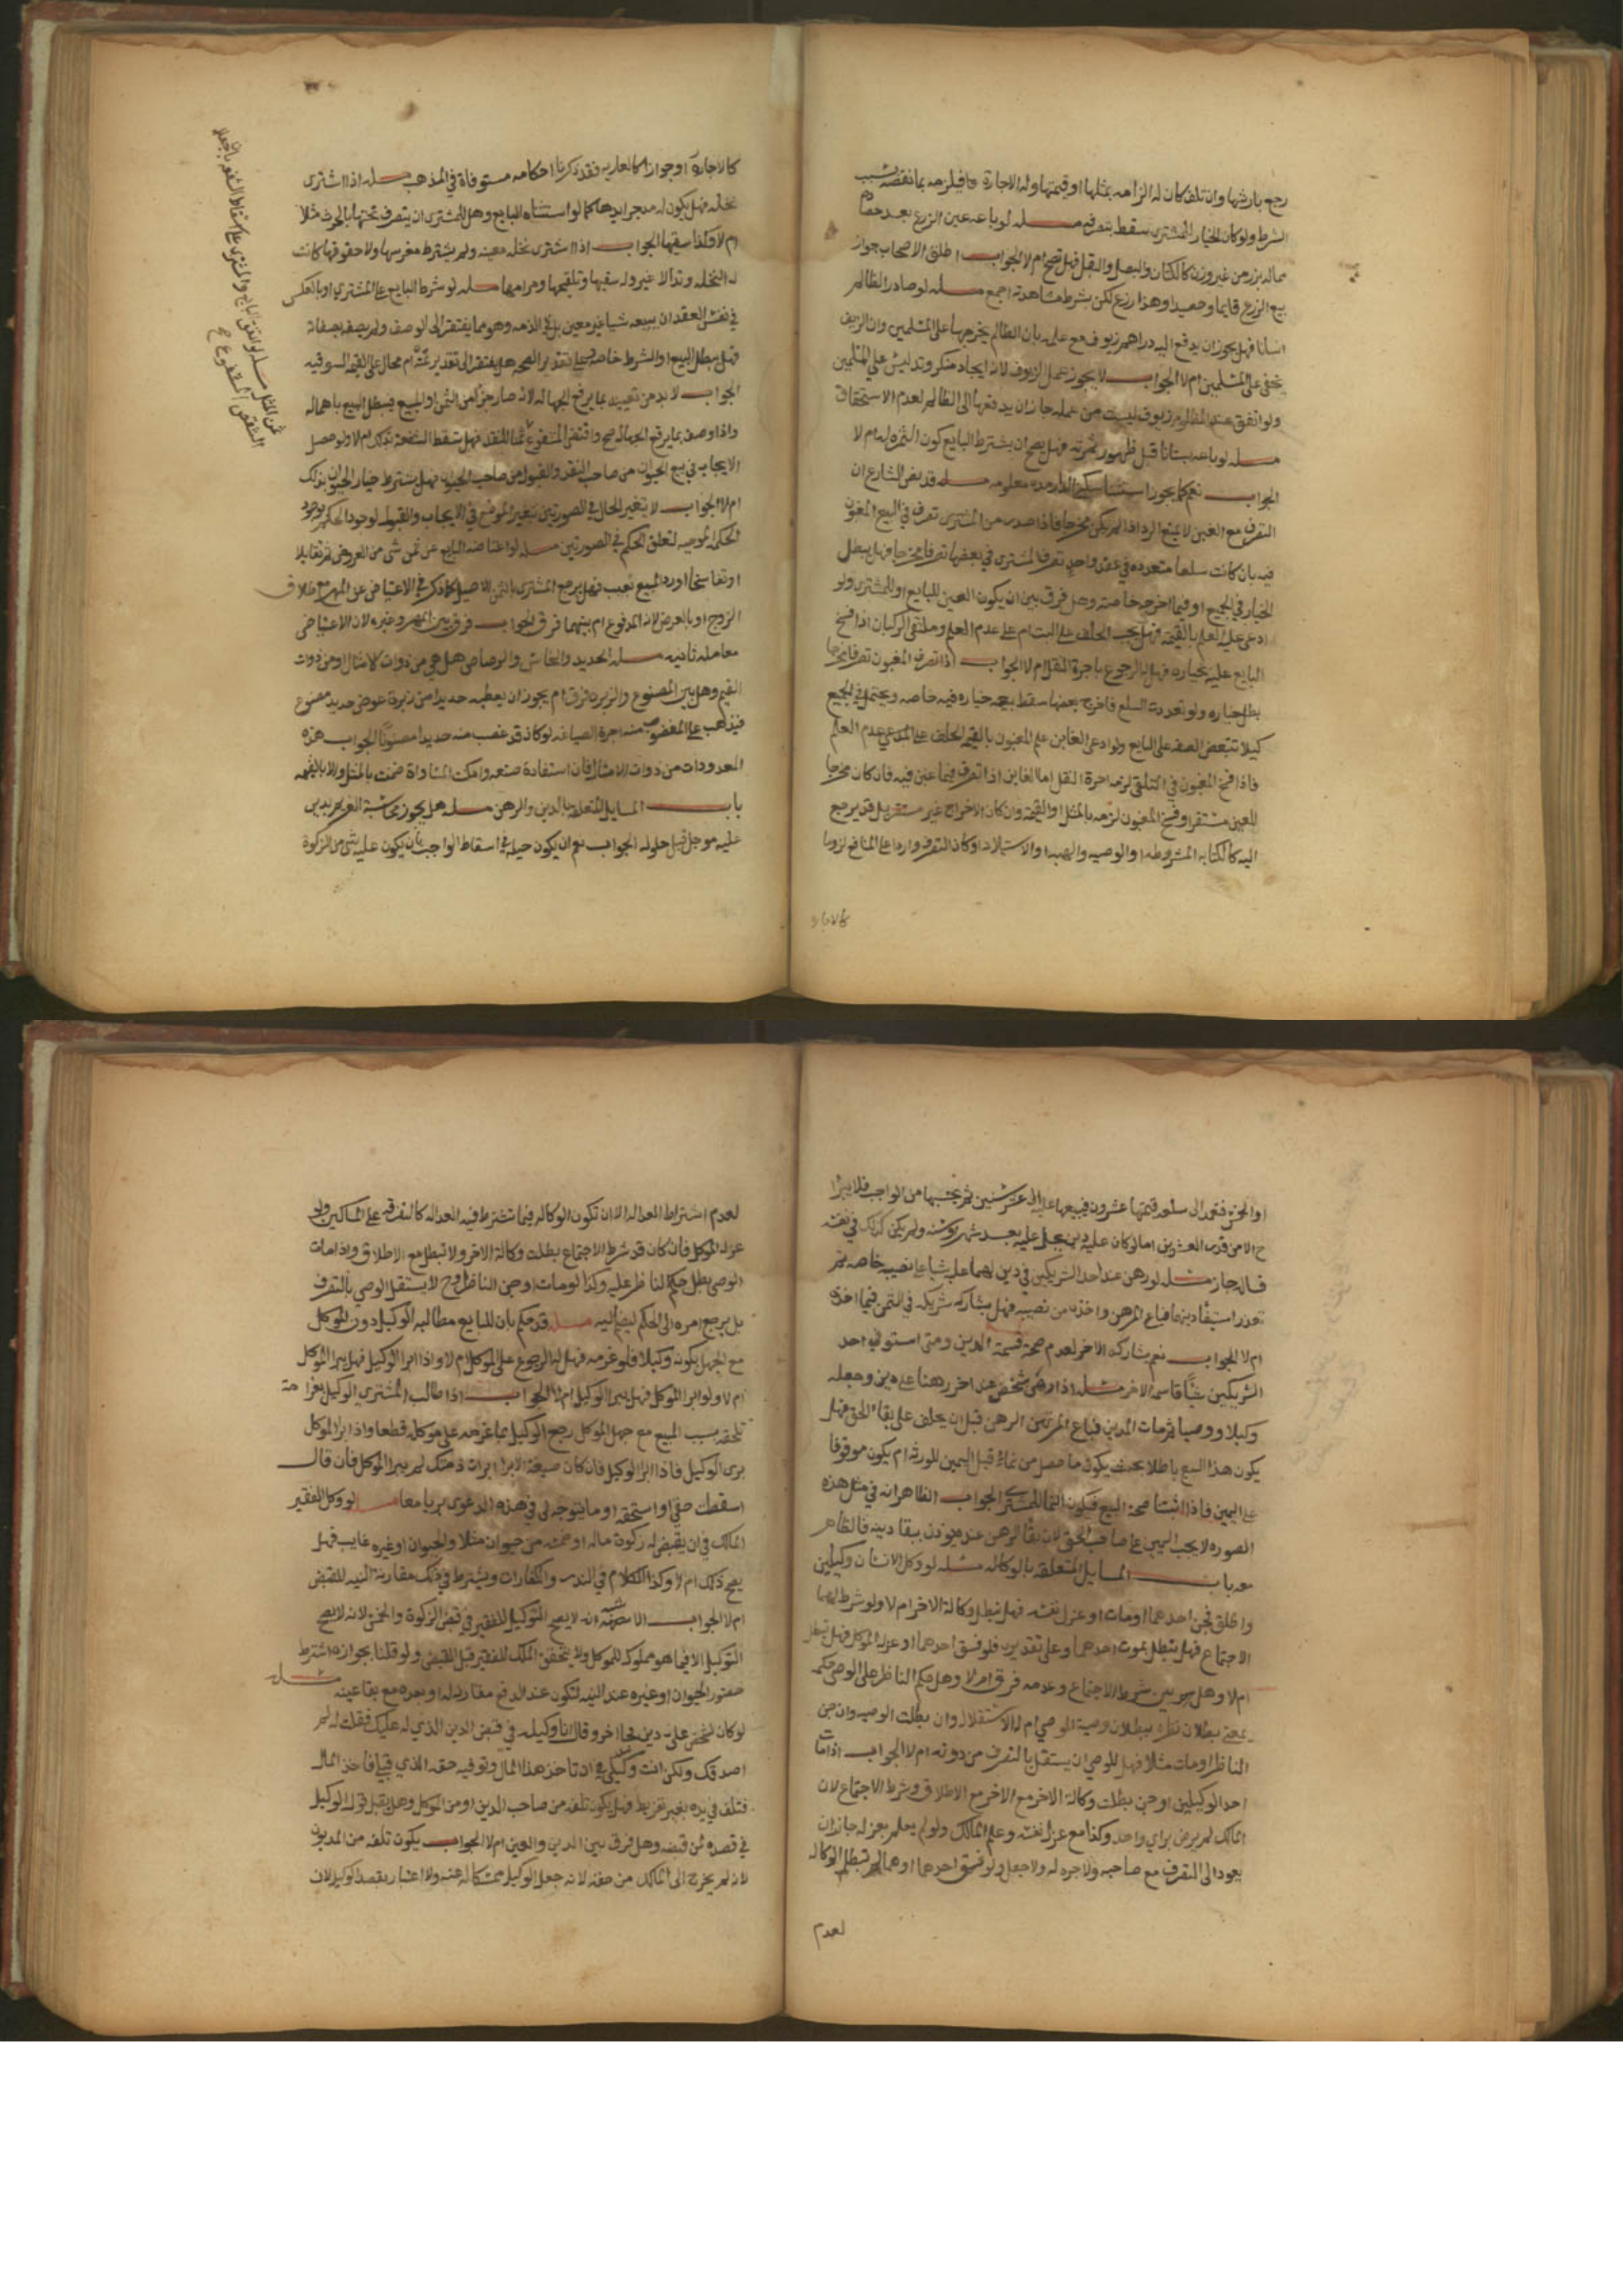 رجع بارشها وان تلف كان له الزامه بمثلها او قيمتها وله الاجارة فيلزمه بما نقصه بسبب
الشرط ولو كان الخيار للمشترى سقط بتصرفه مسله لو باعه عين الزرع بعد حصاده
مما له بزر من غير وزن كالكتان والبصل والبقل فهل تصح ام لا الجواب اطلق الاصحاب جواز
بيع الزرع قايما وحصيدا وهذا زرع لكن بشرط مشاهدته اجمع مسله لو صادر الظالم
انسانا فهل يجوز ان يدفع اليه دراهم زيوف مع علمه بان الظالم يخرجها على المسلمين وان الزيف
يخفى على المسلمين ام لا الجواب لا يجوز عمل الزيوف لانه ايجاد منكر وتدليس على المسلمين
ولو اتفق عند المظلوم زيوف ليست من عمله جاز ان يدفعها الى الظالم لعدم الاستحقاق
مسله لو باعه بستانا قبل ظهور ثمرته فهل يصح ان يشترط البايع كون الثمرة له ام لا
الجواب نعم كما يجوز استثنا سكنى الدار مدة معلومه مسله قد نص الشارع ان
التصرف مع الغبن لا يمنع الرد اذا لم يكن مخرجا فاذا صدر من المشترى تصرف في المبيع المغبون
فيه بان كانت سلعا متعدده في عقد واحد تصرف المشترى في بعضها تصرفا مخرجا فهل يبطل
الخيار في الجميع او فيما اخرجه خاصه وهل فرق بين ان يكون الغبن للبايع او للمشترى ولو
ادعى عليه العلم بالقيمة فهل يجب الحلف على البت ام على عدم العلم ومتلقى الركبان اذا فسخ
البايع عليه بخياره فهل له الرجوع باجرة النقل ام لا الجواب اذا تصرف المغبون تصرفا مخرجا
بطل خياره ولو تعددت السلع فاخرج بعضها سقط خياره فيه خاصه ويحتمل في الجميع
كيلا تتبعض الصفقه على البايع ولو ادعى الغابن علم المغبون بالقيمة الحلف على المدعي عدم العلم
فاذا فسخ المغبون في التلقي لزمه اجرة النقل اما الغابن اذا تصرف فيما غبن فيه فان كان مخرجا
للعين مستقرا وفسخ المغبون لزمه بالمثل او القيمة وان كان الاخراج غير مستقر بل قد يرجع
اليه كالكتابه المشروطه والوصيه والهبه والاستيلاد او كان التصرف واردا على المنافع لزوما
كالاجارة
كالاجارة او جوازا كالعاريه فقد ذكرنا احكامه مستوفاة في المذهب مسله اذا اشترى
نخله فهل يكون له مد جرايدها كما لو استثناه البايع وهل للمشترى ان يتصرف تحتها بالحرث مثلا
ام لا وكذا سقيها الجواب اذا اشترى نخله معينه ولم يشترط مغرسها ولا حقوقها كانت
له النخله وتدا لا غير وله سقيها وتلقيحها ومراميها مسله لو شرط البايع على المشتري او بالعكس
في نفس العقد ان يبيعه شيا غير معين بل في الذمه وهو مما يفتقر الى الوصف ولم يصفه بصفاته
فهل يبطل البيع او الشرط خاصه وعلى تقدير الصحه هل يفتقر الى تقدير ثمنه ام محال على القيمه السوقيه
الجواب لا بد من تعيينه بما يرفع الجهالة لانه صار جزءا من الثمن او المبيع فيبطل البيع باهماله
واذا وصف بما يرفع الجهالة صح
الايجاب في بيع الحيوان من صاحب النقد والقبول من صاحب الحيوان فهل يشترط خيار الحيوان بذلك
ام لا الجواب لا تغير الحال في الصورتين بتغير الموضع في الايجاب والقبول لوجود الحكم بوجود
الحكمة الموجبه لتعلق الحكم في الصورتين مسله لو اعتاضه البايع عن ثمن شى من العروض ثم تقايلا
او تفاسخا او رد المبيع بعيب فهل يرجع المشترى بالثمن الاصيل كما ذكر في الاعتياض عن المهر مع طلاق
الزوج او بالعرض لانه المدفوع ام بينهما فرق الجواب فرق بين المهر وغيره لان الاعتياض
معامله ثانيه مسله الحديد والنحاس والرصاص هل هي من ذوات الامثال او من ذوات
القيم وهل بين المصنوع والزبره فرق ام يجوز ان يعطيه حديدا من زبرة عوض حديد مصنوع
فيذهب على المغصوب منه اجرة الصياغه لو كان قد غصب منه حديدا مصنوعا الجواب هذه
المعدودات من ذوات الامثال فان استفادة صنعه وامكن المساواة ضمنت بالمثل والا بالقيمه
باب المسايل المتعلقة بالدين والرهن مسله هل يجوز محاسبة الغريم بدين
عليه موجل قبل حلوله الجواب نعم ان يكون حيله في اسقاط الواجب بان يكون عليه شى من الزكوة
مسله لو اتفق البايع والمشترى على اسقاط الشفعه
او الخمس فتعمد الى سلعه قيمتها عشرون فيبيعها عليه الى عشر سنين ثم يحتسبها من الواجب فلا يبرا
ح الا من قدر العشرين اما لو كان عليه دين يحل عليه بعد شهر او سنه ولم يكن كذلك في نفسه
فانه جاز مسله لو رهن عند احد الشريكين في دين لهما عليه شيا على نصيبه خاصه ثم
تعذر استيفا دينهما فباع المرهن واخذه من نصيبه فهل يشاركه شريكه في الثمن فيما اخذه
ام لا الجواب نعم يشاركه الاخر لعدم صحة قسمة الدين ومتى استوفى احد
الشريكين شيا قاسمه الاخر مسله اذا رهن شخص عند اخر رهنا على دين وجعله
وكيلا ووصيا ثم مات المدين فباع المرتهن الرهن قبل ان يحلف على بقاء الحق فهل
يكون هذا البيع باطلا بحيث يكون ما حصل من نماء قبل اليمين للورثه ام يكون موقوفا
على اليمين فاذا اثبتنا صحة البيع فيكون النما للمشترى الجواب الظاهر انه في مثل هذه
الصوره لا يجب اليمين على صاحب الحق لان بقا الرهن عنده يوذن ببقا دينه فالظاهر
معه باب المسايل المتعلقه بالوكاله مسئله لو وكل الانسان وكيلين
واطلق فجن احدهما او مات او عزل نفسه فهل تبطل وكالة الاخر ام لا ولو شرط لهما
الاجتماع فهل تبطل بموت احدهما وعلى تقديره فلو فسق احدهما او عزله الموكل فهل تبطل
ام لا وهل بين شرط الاجتماع وعدمه فرق ام لا وهل حكم الناظر على الوصى حكمه
بمعنى بطلان نظره ببطلان وصية الوصي ام له الاستقلال وان بطلت الوصيه وان جن
الناظر او مات مثلا فهل للوصي ان يستقل بالتصرف من دونه ام لا الجواب اذا مات
احد الوكيلين او جن بطلت وكالة الاخر مع الاطلاق وشرط الاجتماع لان
المالك لم يرض براي واحد وكذا مع عزل نفسه وعلم المالك ولو لم يعلم بعزله جاز ان
يعود الى التصرف مع صاحبه ولا اجره له ولا جعل ولو فسق احدهما او هما لم تبطل الوكاله
لعدم
لعدم اشتراط العداله الا ان تكون الوكاله فيما تشترط فيه العداله كالتفرقه على المساكين ولو
عزله الموكل فان كان قد شرط الاجتماع بطلت وكالة الاخر ولا تبطل مع الاطلاق واذا مات
الوصى بطل حكم الناظر عليه وكذا لو مات او جن الناظر وح لا يستقل الوصي بالتصرف
بل يرجع امره الى الحكم ليضم اليه مسله قد حكم بان للبايع مطالبه الوكيل دون الموكل
مع الجهل بكونه وكيلا فلو غرمه فهل له الرجوع على الموكل ام لا واذا ابرا الوكيل فهل يبرا الموكل
ام لا ولو ابرا الموكل فهل يبرا الوكيل ام لا الجواب اذا طالب المشتري الوكيل بغرامة
تلحقه بسبب المبيع مع جهل الموكل رجع الوكيل بما غرمه على موكله قطعا واذا ابرا الموكل
برى الوكيل فاذا ابرا الوكيل فان كان صيغة الابرا ابرات ذمتك لم يبرا الموكل فان قال
اسقطت حقي او استحقه او ما يتوجه لي في هذه الدعوى بريا معا مسله لو وكل الفقير
المالك في ان يقبض له زكوة ماله او خمسه من حيوان مثلا والحيوان او غيره غايب فهل
يصح ذلك ام لا وكذا الكلام في النذر والكفارات ويشترط في ذلك مقارنة النيه للقبض
ام لا الجواب الا انه لا يصح التوكيل للفقير في قبض الزكوة والخمس لانه لا يصح
التوكيل الا فيما هو مملوك للموكل ولا يتحقق الملك للفقير قبل القبض ولو قلنا بجوازه اشترط
حضور الحيوان او غيره عند النيه لتكون عند الدفع مقارنه له او بعده مع بقا عينه مسله
لو كان لشخص على دين فجا اخر وقال انا وكيله في قبض الدين الذي له عليك فقلت له لم
اصدقك ولكن انت وكيلي في ان تاخذ هذا المال وتوفيه حقه الذي قبلي فاخذ المال
فتلف في يده بغير تفريط فهل يكون تلفه من صاحب الدين او من الموكل وهل يقبل قول الوكيل
في قصده لمن قبضه وهل فرق بين الدين والعين ام لا الجواب يكون تلفه من المديون
لانه لم يخرج الى المالك من حقه لانه جعل الوكيل ولا اعتبار بقصد الوكيل لان